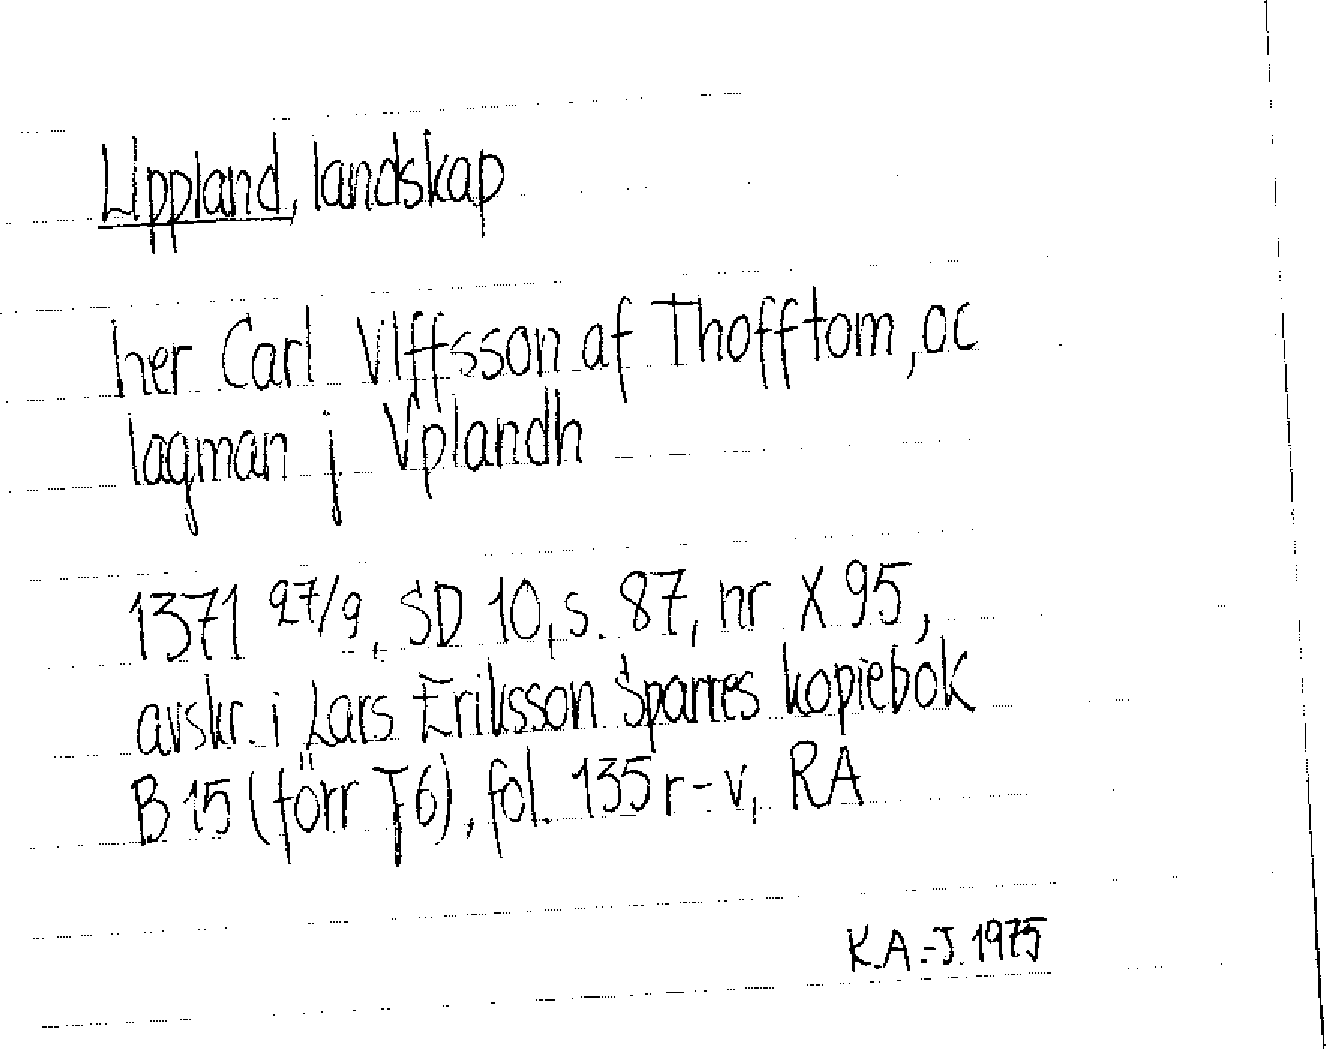 Uppland, landskap
her Carl Vlffsson af Thofftom, oc
lagman j Vplandh
1371 27/9, SD 10, s. 87, nr X 95,
avskr. i Lars Eriksson Sparres kopiebok
B 15 (förr T 6), fol. 135 r-v, RA
K.A.-J. 1975